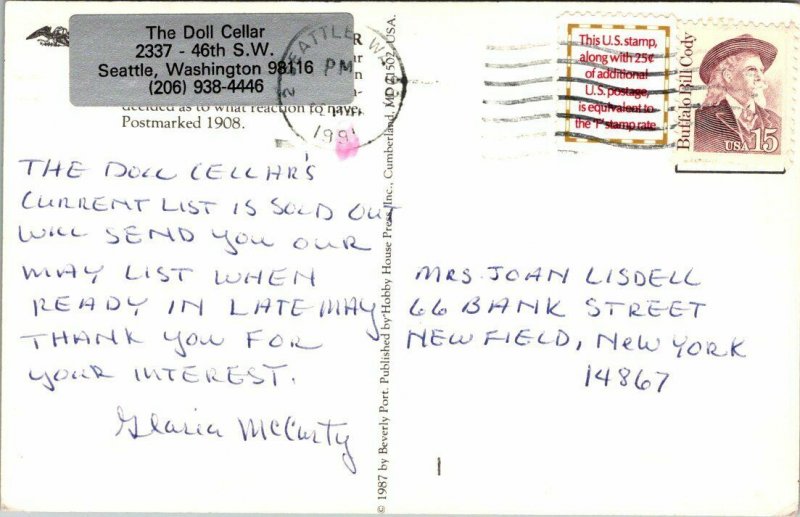 The Doll Cellar
2337 - 46th S.W.
Seattle, Washington 98116
(206) 938-4446
decided as to what reaction to have.
Postmarked 1908.
SEATTLE WA
PM
1991
This U.S. stamp,
along with 25¢
of additional
U.S. postage,
is equivalent to
the 'F' stamp rate
Buffalo Bill Cody
USA 15
THE DOLL CELLAR'S
CURRENT LIST IS SOLD OUT
WILL SEND YOU OUR
MAY LIST WHEN
READY IN LATE MAY
THANK YOU FOR
YOUR INTEREST.
Gloria McCarty
© 1987 by Beverly Port. Published by Hobby House Press, Inc., Cumberland, MD 21502 USA.
MRS. JOAN LISDELL
66 BANK STREET
NEWFIELD, NEW YORK
14867